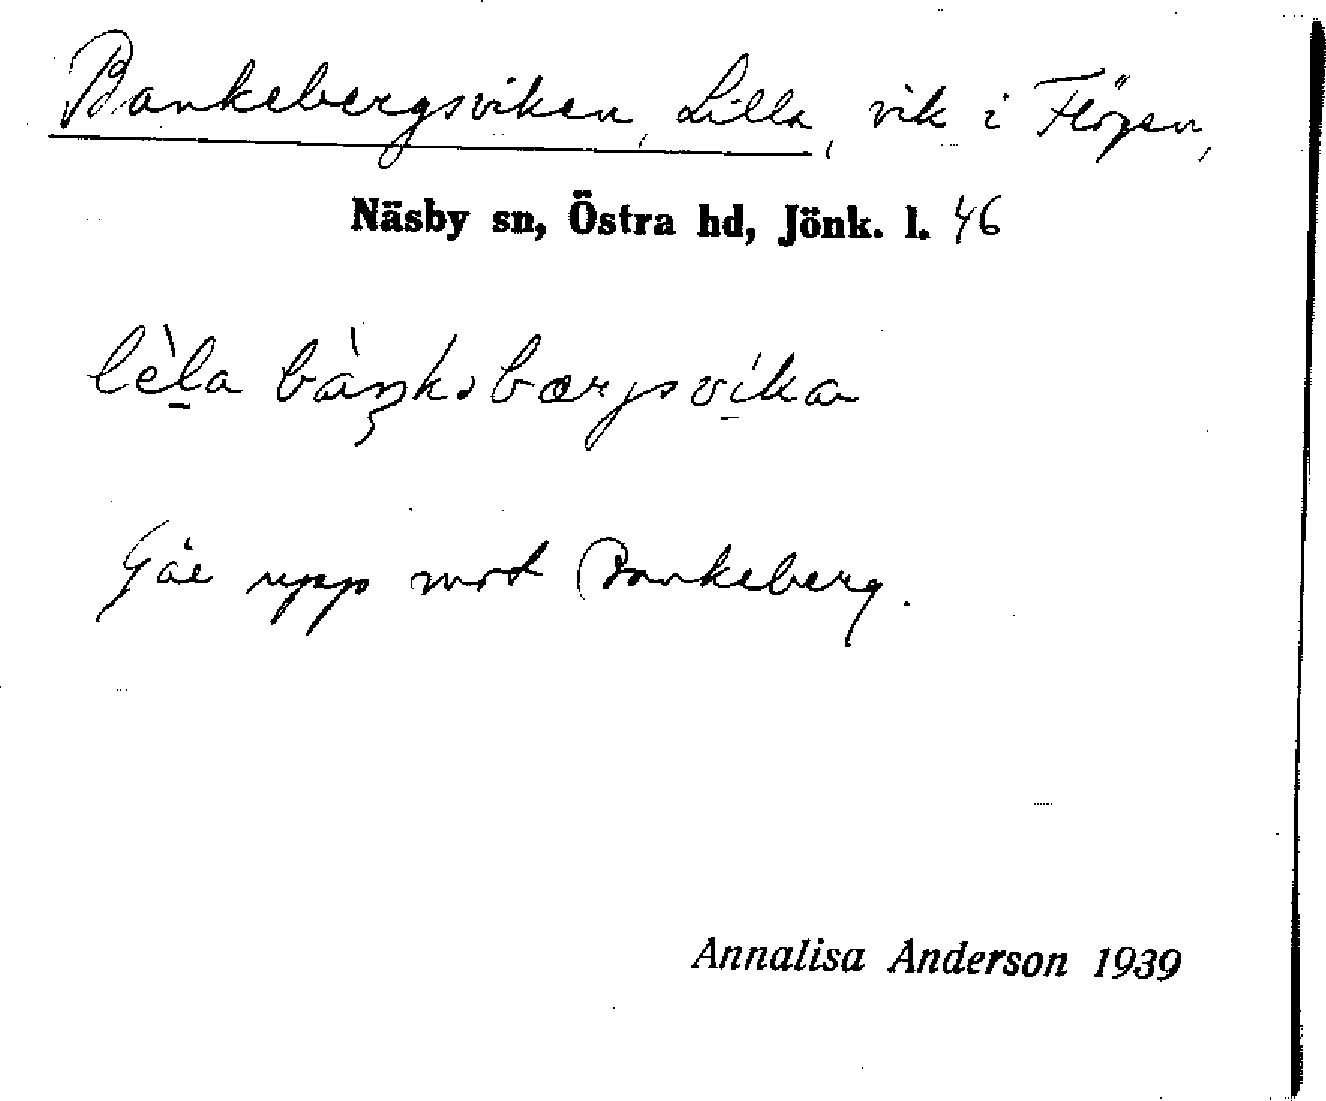 Bankebergsviken, Lilla, vik i Flögen,
Näsby sn, Östra hd, Jönk. l. 46
Går upp mot Bankeberg.
Annalisa Anderson 1939